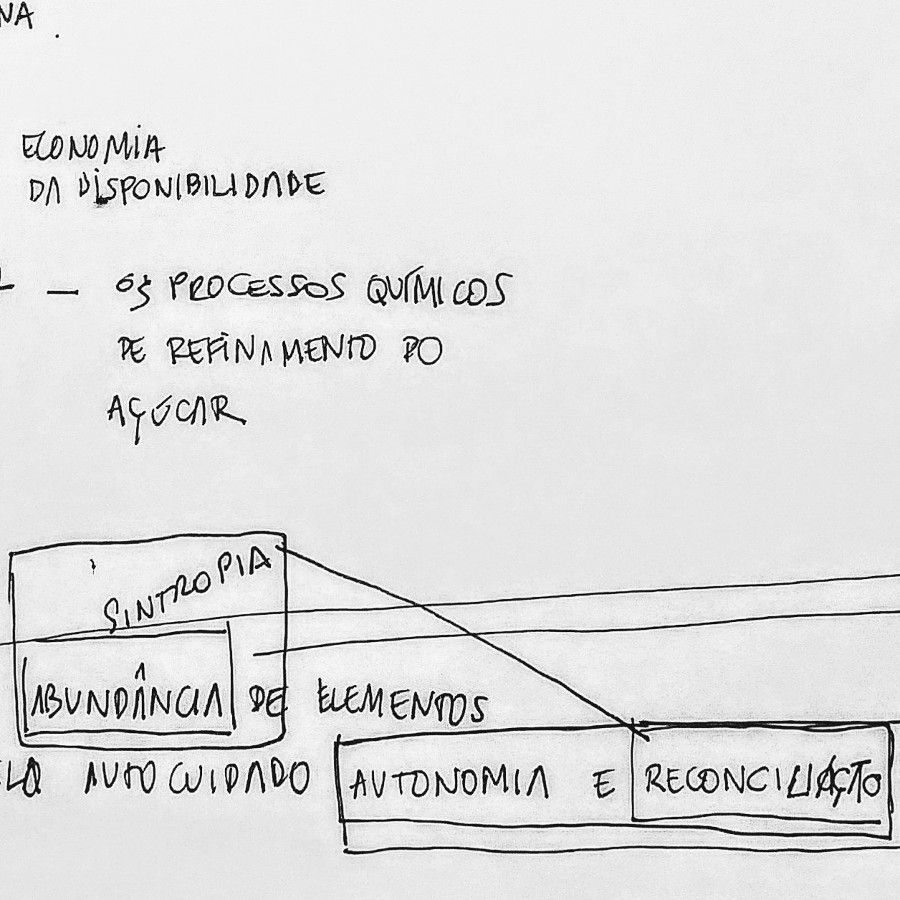 NA.
ECONOMIA
DA DISPONIBILIDADE
— OS PROCESSOS QUÍMICOS
DE REFINAMENTO DO
AÇÚCAR
SINTROPIA
ABUNDÂNCIA DE ELEMENTOS
AUTOCUIDADO AUTONOMIA E RECONCILIAÇÃO